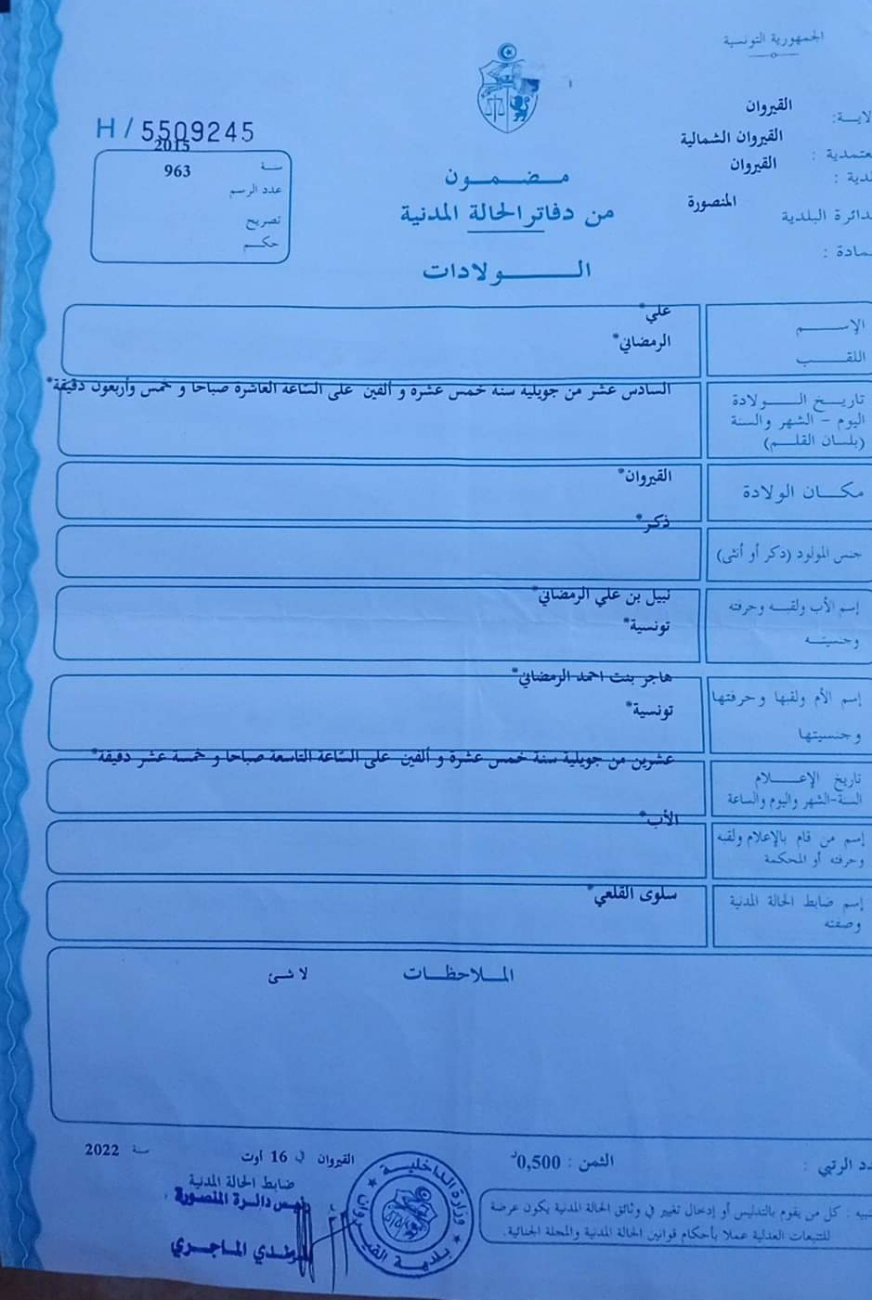 الجمهورية التونسية
القيروان
القيروان الشمالية
القيروان
: المنصورة
الدائرة البلدية
H / 5509245
سنة 2015
عدد الرسم 963
تصريح
حكم
مضمون
من دفاتر الحالة المدنية
الولادات
الإسم علي*
اللقب الرمضاني*
تاريخ الولادة
اليوم - الشهر والسنة
(بلسان القلم)
السادس عشر من جويلية سنة خمس عشرة و ألفين على الساعة العاشرة صباحا و خمس وأربعون دقيقة*
مكان الولادة القيروان*
جنس المولود (ذكر أو أنثى) ذكر*
إسم الأب ولقبه وحرفته نبيل بن علي الرمضاني*
وجنسيته تونسية*
إسم الأم ولقبها وحرفتها هاجر بنت احمد الرمضاني*
وجنسيتها تونسية*
تاريخ الإعلام
السنة-الشهر واليوم والساعة
عشرين من جويلية سنة خمس عشرة و ألفين على الساعة التاسعة صباحا و خمسة عشر دقيقة*
إسم من قام بالإعلام ولقبه
وحرفته أو المحكمة
الأب*
إسم ضابط الحالة المدنية
وصفته
سلوى القلعي*
الملاحظات
لا شئ
الرتبي :
الثمن : 0,500د
القيروان في 16 أوت سنة 2022
ضابط الحالة المدنية
رئيس دائرة المنصورة
الماجري
وزارة الداخلية
بلدية القيروان
: كل من يقوم بالتدليس أو إدخال تغيير في وثائق الحالة المدنية يكون عرضة
للتتبعات العدلية عملا بأحكام قوانين الحالة المدنية والمجلة الجنائية.